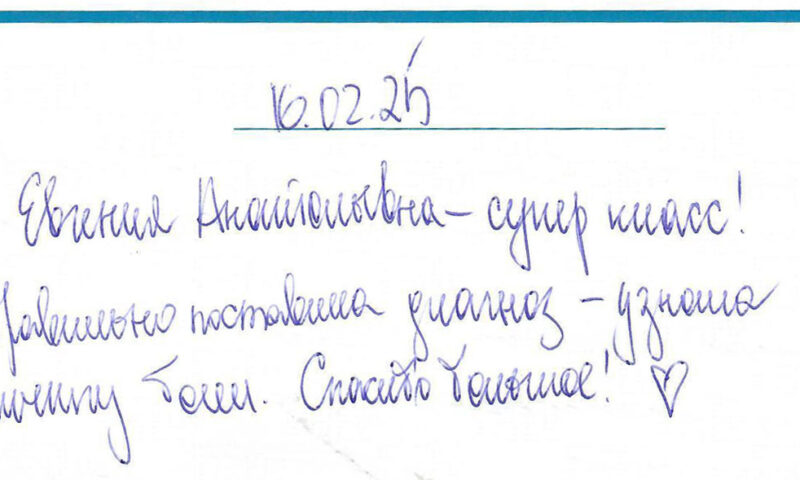 16.02.25
Евгения Анатольевна – супер класс!
Правильно поставила диагноз – узнала
причину боли. Спасибо большое! ♡